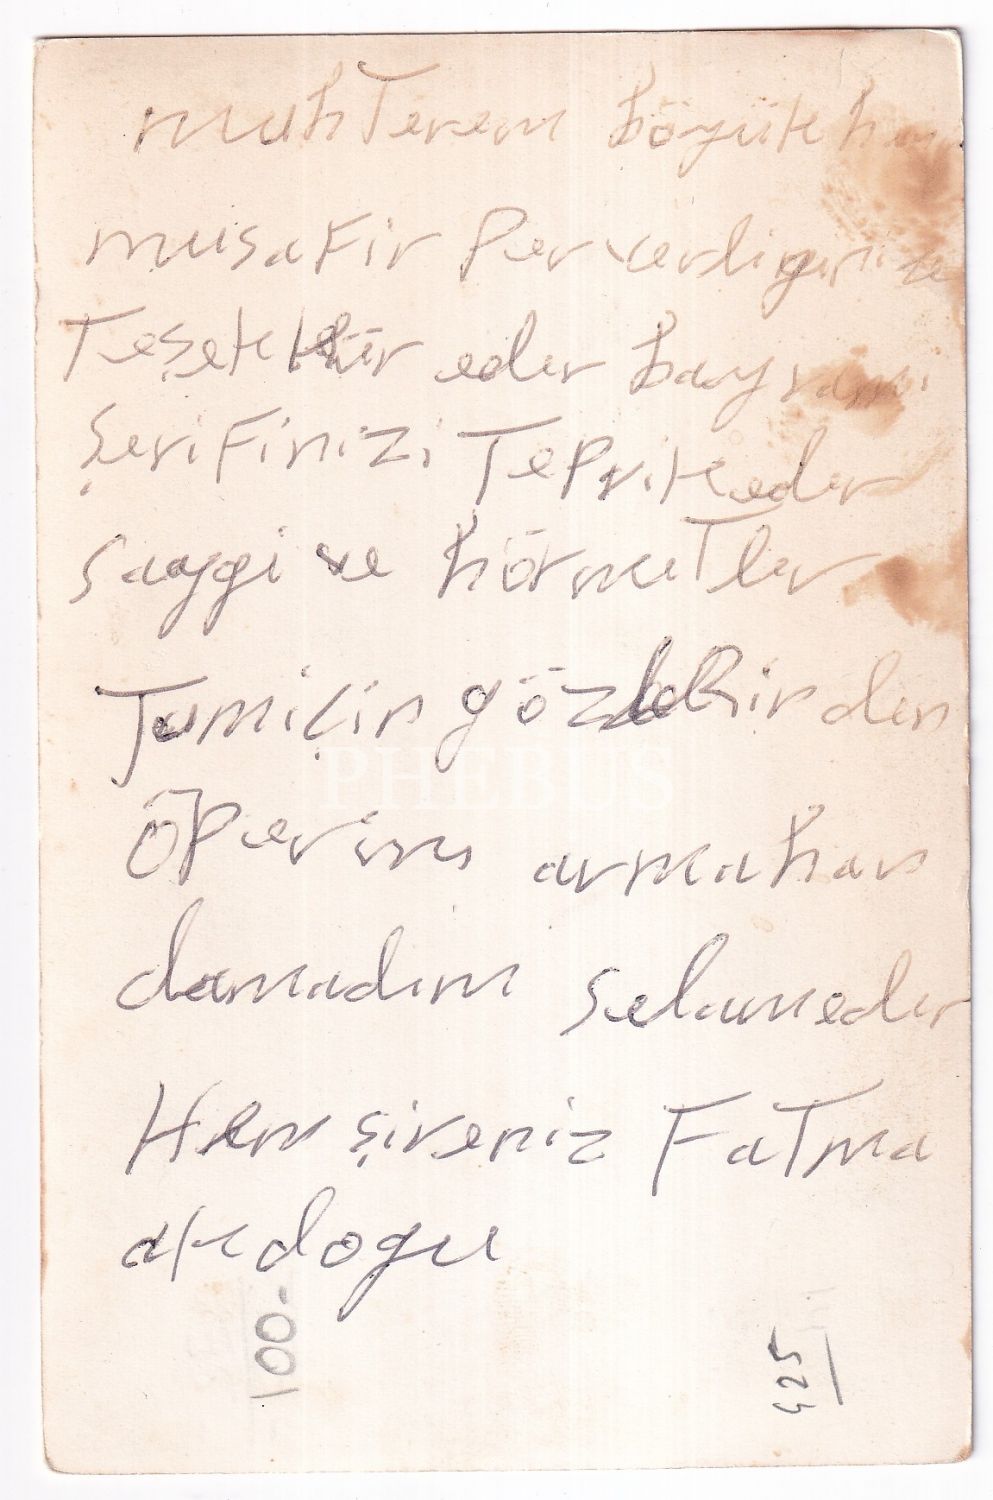 muhTerem böyük
musafir Perverliginize
Teşekkür eder bayramı
şerifinizi Tepvik eder
saygi ve hörmetler
Tumiçin gözlerinden
öperim armahan
damadım selam eder
Hemşireniz FaTma
akdogu
PHEBUS
100-
425